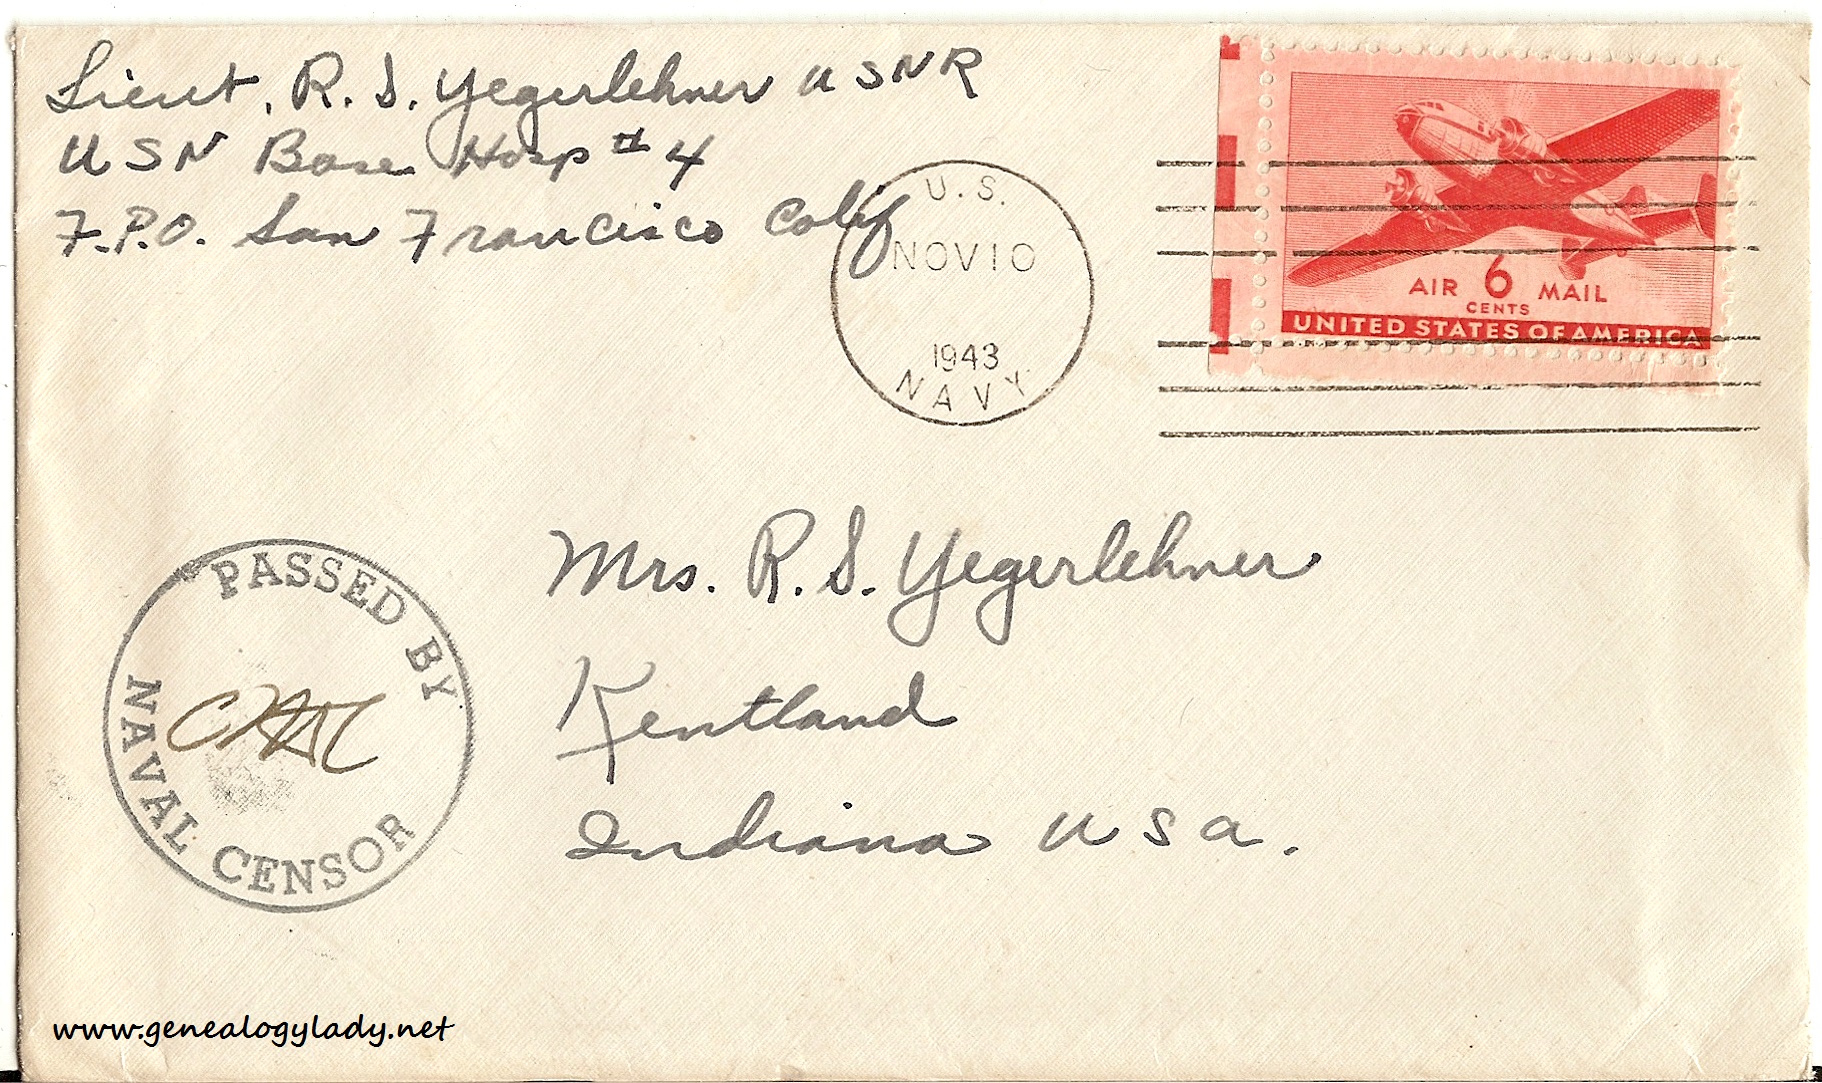 Lieut. R. S. Yegerlehner USNR
USN Base Hosp # 4
F.P.O. San Francisco Calif
U.S.
NOV 10
1943
NAVY
AIR 6 MAIL
CENTS
UNITED STATES OF AMERICA
PASSED BY
NAVAL CENSOR
Mrs. R. S. Yegerlehner
Kentland
Indiana USA.
www.genealogylady.net